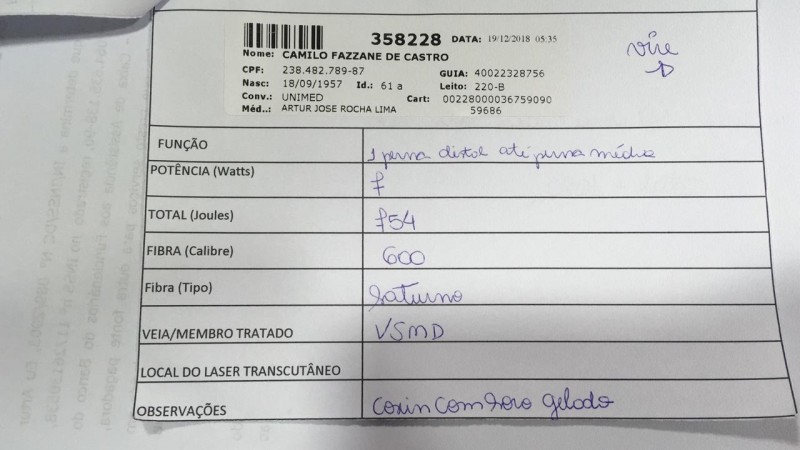 358228 DATA: 19/12/2018 05:35
Nome: CAMILO FAZZANE DE CASTRO
CPF: 238.482.789-87 GUIA: 40022328756
Nasc: 18/09/1957 Id.: 61 a Leito: 220-B
Conv.: UNIMED Cart: 00228000036759090
Méd..: ARTUR JOSE ROCHA LIMA 59686
vire
FUNÇÃO 1 perna distal até perna média
POTÊNCIA (Watts) 7
TOTAL (Joules) 754
FIBRA (Calibre) 600
Fibra (Tipo) Saturno
VEIA/MEMBRO TRATADO VSMD
LOCAL DO LASER TRANSCUTÂNEO
OBSERVAÇÕES com soro gelado